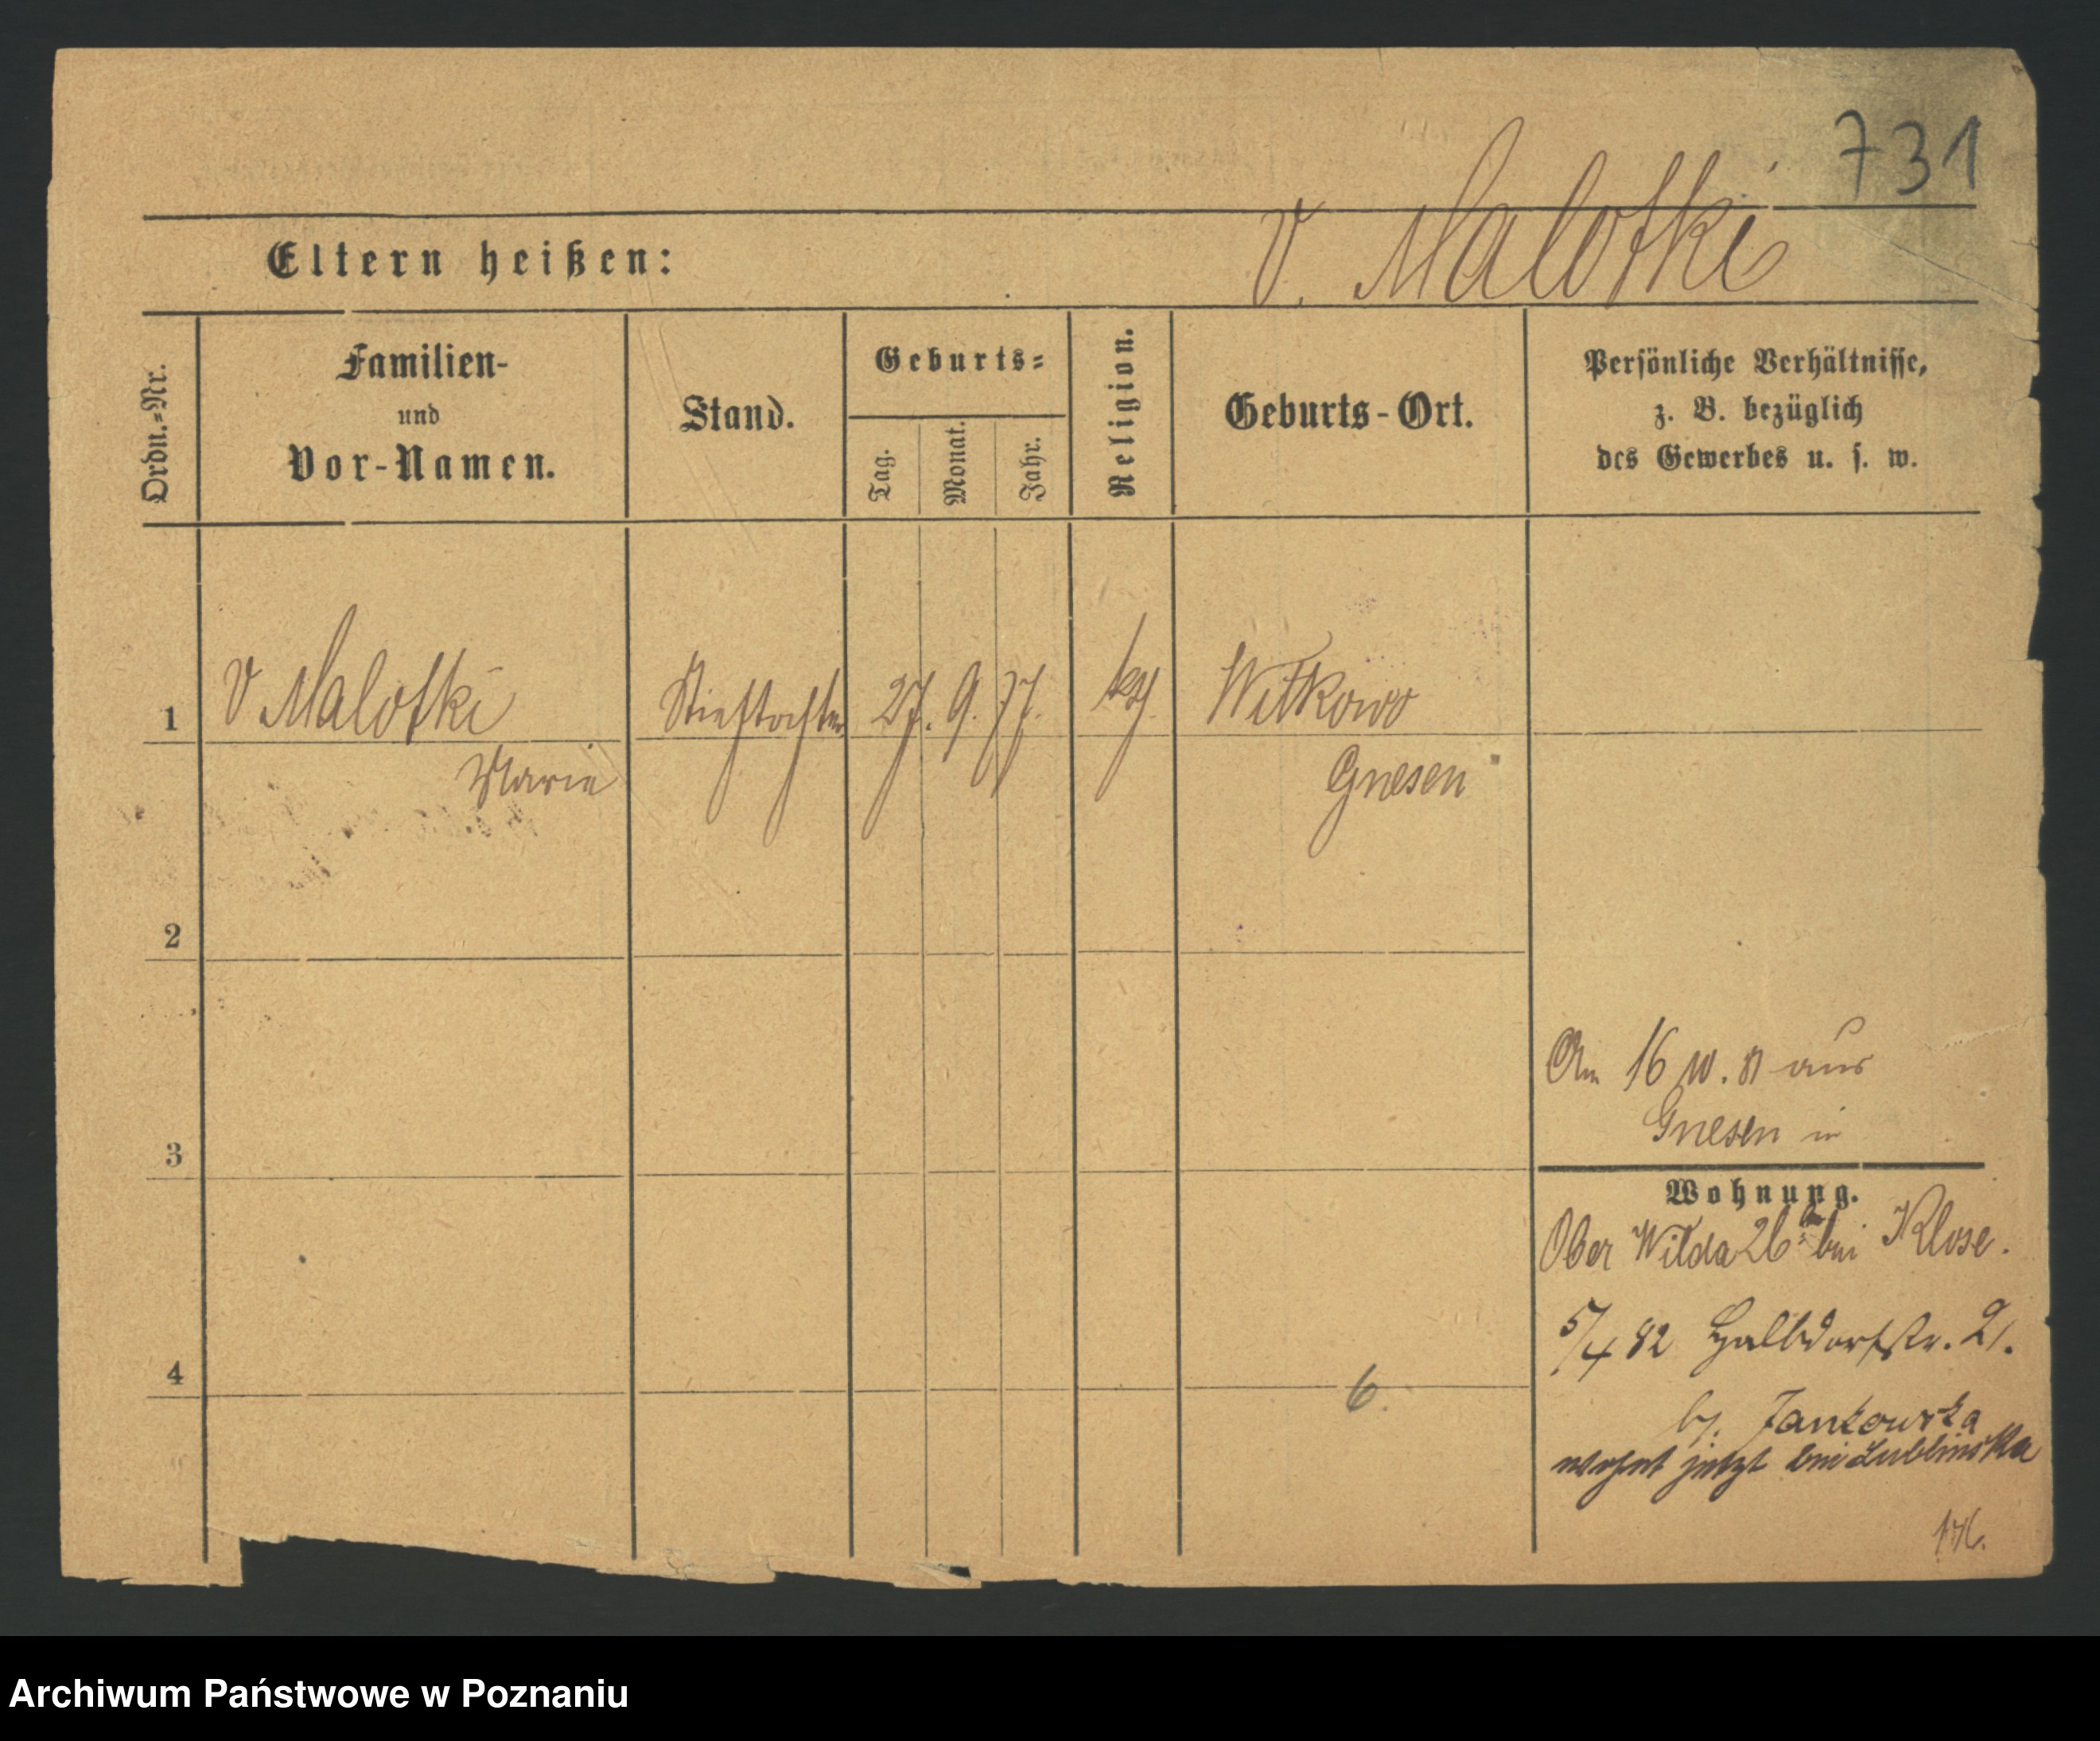 731
V. Malotki
Eltern heißen:
Ordn.-Nr.
Familien-
und
Vor-Namen.
Stand.
Geburts-
Tag.
Monat.
Jahr.
Religion.
Geburts-Ort.
Persönliche Verhältnisse,
z. B. bezüglich
des Gewerbes u. s. w.
1
V Malotki
Marie
Stieftochter
27. 9. 77.
Witkowo
Gnesen
2
3
4
6
Am 16
aus
Gnesen in
Wohnung.
Ober Wilda 26 bei Klose.
5/4 82 Halbdorfstr. 21.
b. Jankowska
wohnt jetzt bei Lublinska
Archiwum Państwowe w Poznaniu